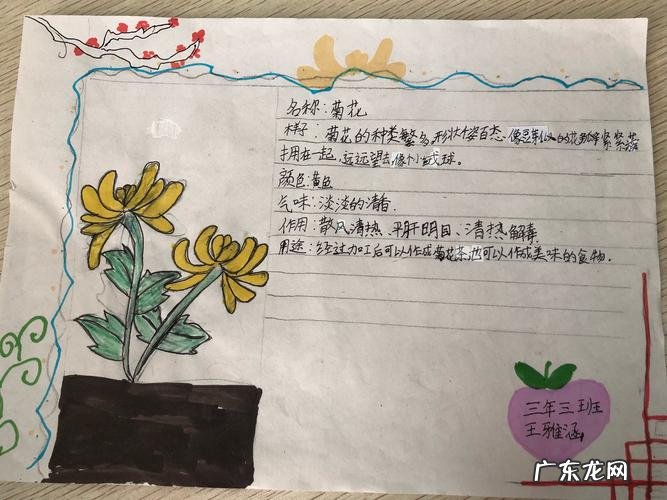 名称：菊花
样子：菊花的种类繁多，形状千姿百态，像豆芽似的花瓣紧紧簇
拥在一起，远远望去像个小绒球。
颜色：黄色
气味：淡淡的清香.
作用：散风清热、平肝明目、清热解毒
用途：经过加工后可以作成菊花茶也可以作成美味的食物.
三年三班
王雅涵
广东龙网